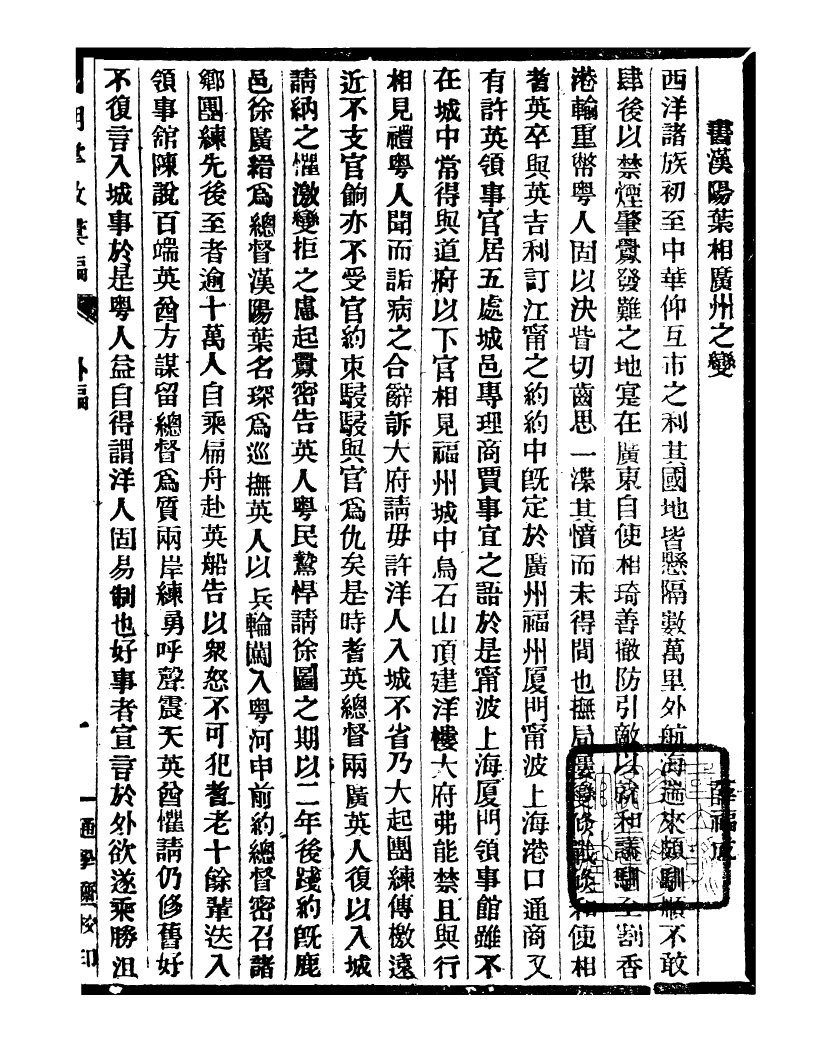 書漢陽葉相廣州之變
薛福成
西洋諸族初至中華仰互市之利其國地皆懸隔數萬里外航海遄來頗馴順不敢
肆後以禁煙肇釁發難之地寔在廣東自使相琦善撤防引敵以就和議馴至割香
港輸重幣粵人固以決眥切齒思一渫其憤而未得間也撫局屢變倏戰倏和使相
耆英卒與英吉利訂江甯之約約中旣定於廣州福州厦門甯波上海港口通商又
有許英領事官居五處城邑專理商賈事宜之語於是甯波上海厦門領事館雖不
在城中常得與道府以下官相見福州城中烏石山頂建洋樓大府弗能禁且與行
相見禮粵人聞而詬病之合辭訴大府請毋許洋人入城不省乃大起團練傳檄遠
近不支官餉亦不受官約束駸駸與官爲仇矣是時耆英總督兩廣英人復以入城
請納之懼激變拒之慮起釁密告英人粵民鷙悍請徐圖之期以二年後踐約旣鹿
邑徐廣縉爲總督漢陽葉名琛爲巡撫英人以兵輪闖入粵河申前約總督密召諸
鄉團練先後至者逾十萬人自乘扁舟赴英船告以衆怒不可犯耆老十餘輩迭入
領事舘陳說百端英酋方謀留總督爲質兩岸練勇呼聲震天英酋懼請仍修舊好
不復言入城事於是粵人益自得謂洋人固易制也好事者宣言於外欲遂乘勝沮
外編
一
通學齋校印